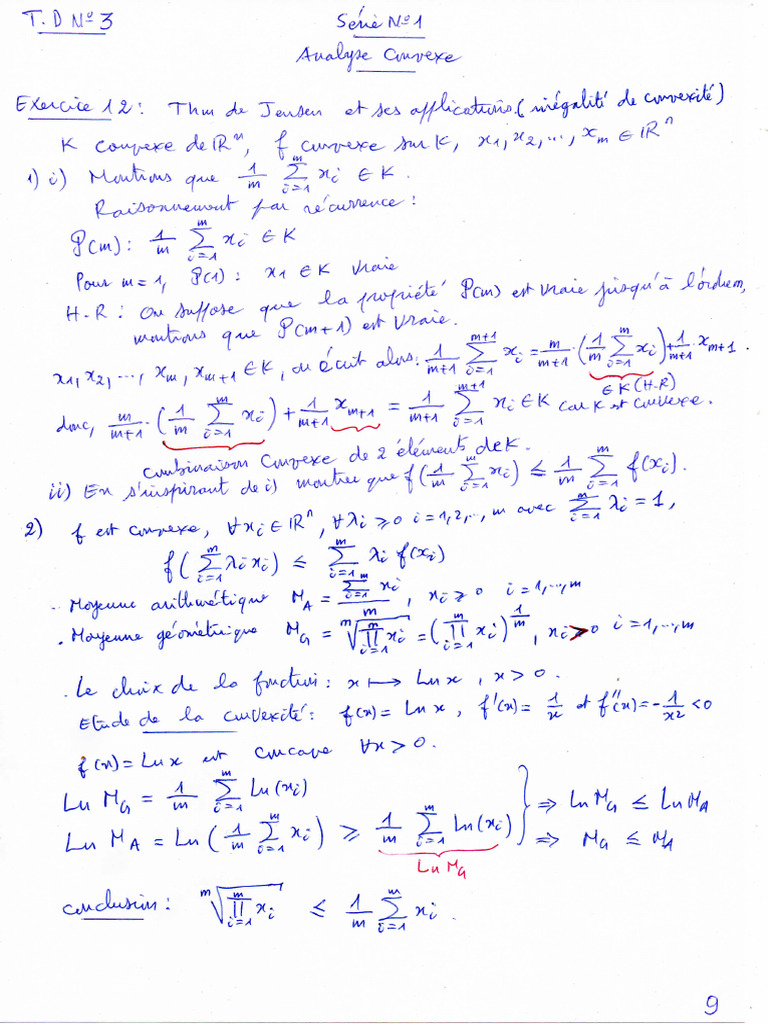 T.D N° 3
Série N° 1
Analyse Convexe
Exercice 12 : Thm de Jensen et ses applications. (inégalité de convexité)
K convexe de ℝⁿ, f convexe sur K, x₁, x₂, ..., xₘ ∈ ℝⁿ
1) i) Montrons que 1/m ∑_{i=1}^{m} xᵢ ∈ K.
Raisonnement par récurrence :
P(m) : 1/m ∑_{i=1}^{m} xᵢ ∈ K
Pour m=1, P(1) : x₁ ∈ K vraie
H.R : On suppose que la propriété P(m) est vraie jusqu'à l'ordre m,
montrons que P(m+1) est vraie.
x₁, x₂, ..., xₘ, xₘ₊₁ ∈ K, on écrit alors : 1/(m+1) ∑_{i=1}^{m+1} xᵢ = m/(m+1) · (1/m ∑_{i=1}^{m} xᵢ) + 1/(m+1) · xₘ₊₁.
∈ K (H-R)
donc, m/(m+1) · (1/m ∑_{i=1}^{m} xᵢ) + 1/(m+1) xₘ₊₁ = 1/(m+1) ∑_{i=1}^{m+1} xᵢ ∈ K car K est convexe.
Combinaison Convexe de 2 éléments de K.
ii) En s'inspirant de i) montrer que f(1/m ∑_{i=1}^{m} xᵢ) ≤ 1/m ∑_{i=1}^{m} f(xᵢ).
2) f est convexe, ∀xᵢ ∈ ℝⁿ, ∀λᵢ ⩾ 0 i=1,2,..., m avec ∑_{i=1}^{m} λᵢ = 1,
f(∑_{i=1}^{m} λᵢ xᵢ) ≤ ∑_{i=1}^{m} λᵢ f(xᵢ)
. Moyenne arithmétique M_A = (∑_{i=1}^{m} xᵢ)/m, xᵢ ⩾ 0 i=1,...,m
. Moyenne géométrique M_G = ᵐ√(∏_{i=1}^{m} xᵢ) = (∏_{i=1}^{m} xᵢ)^{1/m}, xᵢ > 0 i=1,...,m
. Le choix de la fonction : x ↦ Ln x, x > 0.
Etude de la convexité : f(x) = Ln x, f'(x) = 1/x et f''(x) = -1/x² < 0
f(x) = Ln x est concave ∀x > 0.
Ln M_G = 1/m ∑_{i=1}^{m} Ln(xᵢ)
⇒ Ln M_G ≤ Ln M_A
Ln M_A = Ln(1/m ∑_{i=1}^{m} xᵢ) ⩾ 1/m ∑_{i=1}^{m} Ln(xᵢ)
⇒ M_G ≤ M_A
Ln M_G
Conclusion : ᵐ√(∏_{i=1}^{m} xᵢ) ≤ 1/m ∑_{i=1}^{m} xᵢ.
9